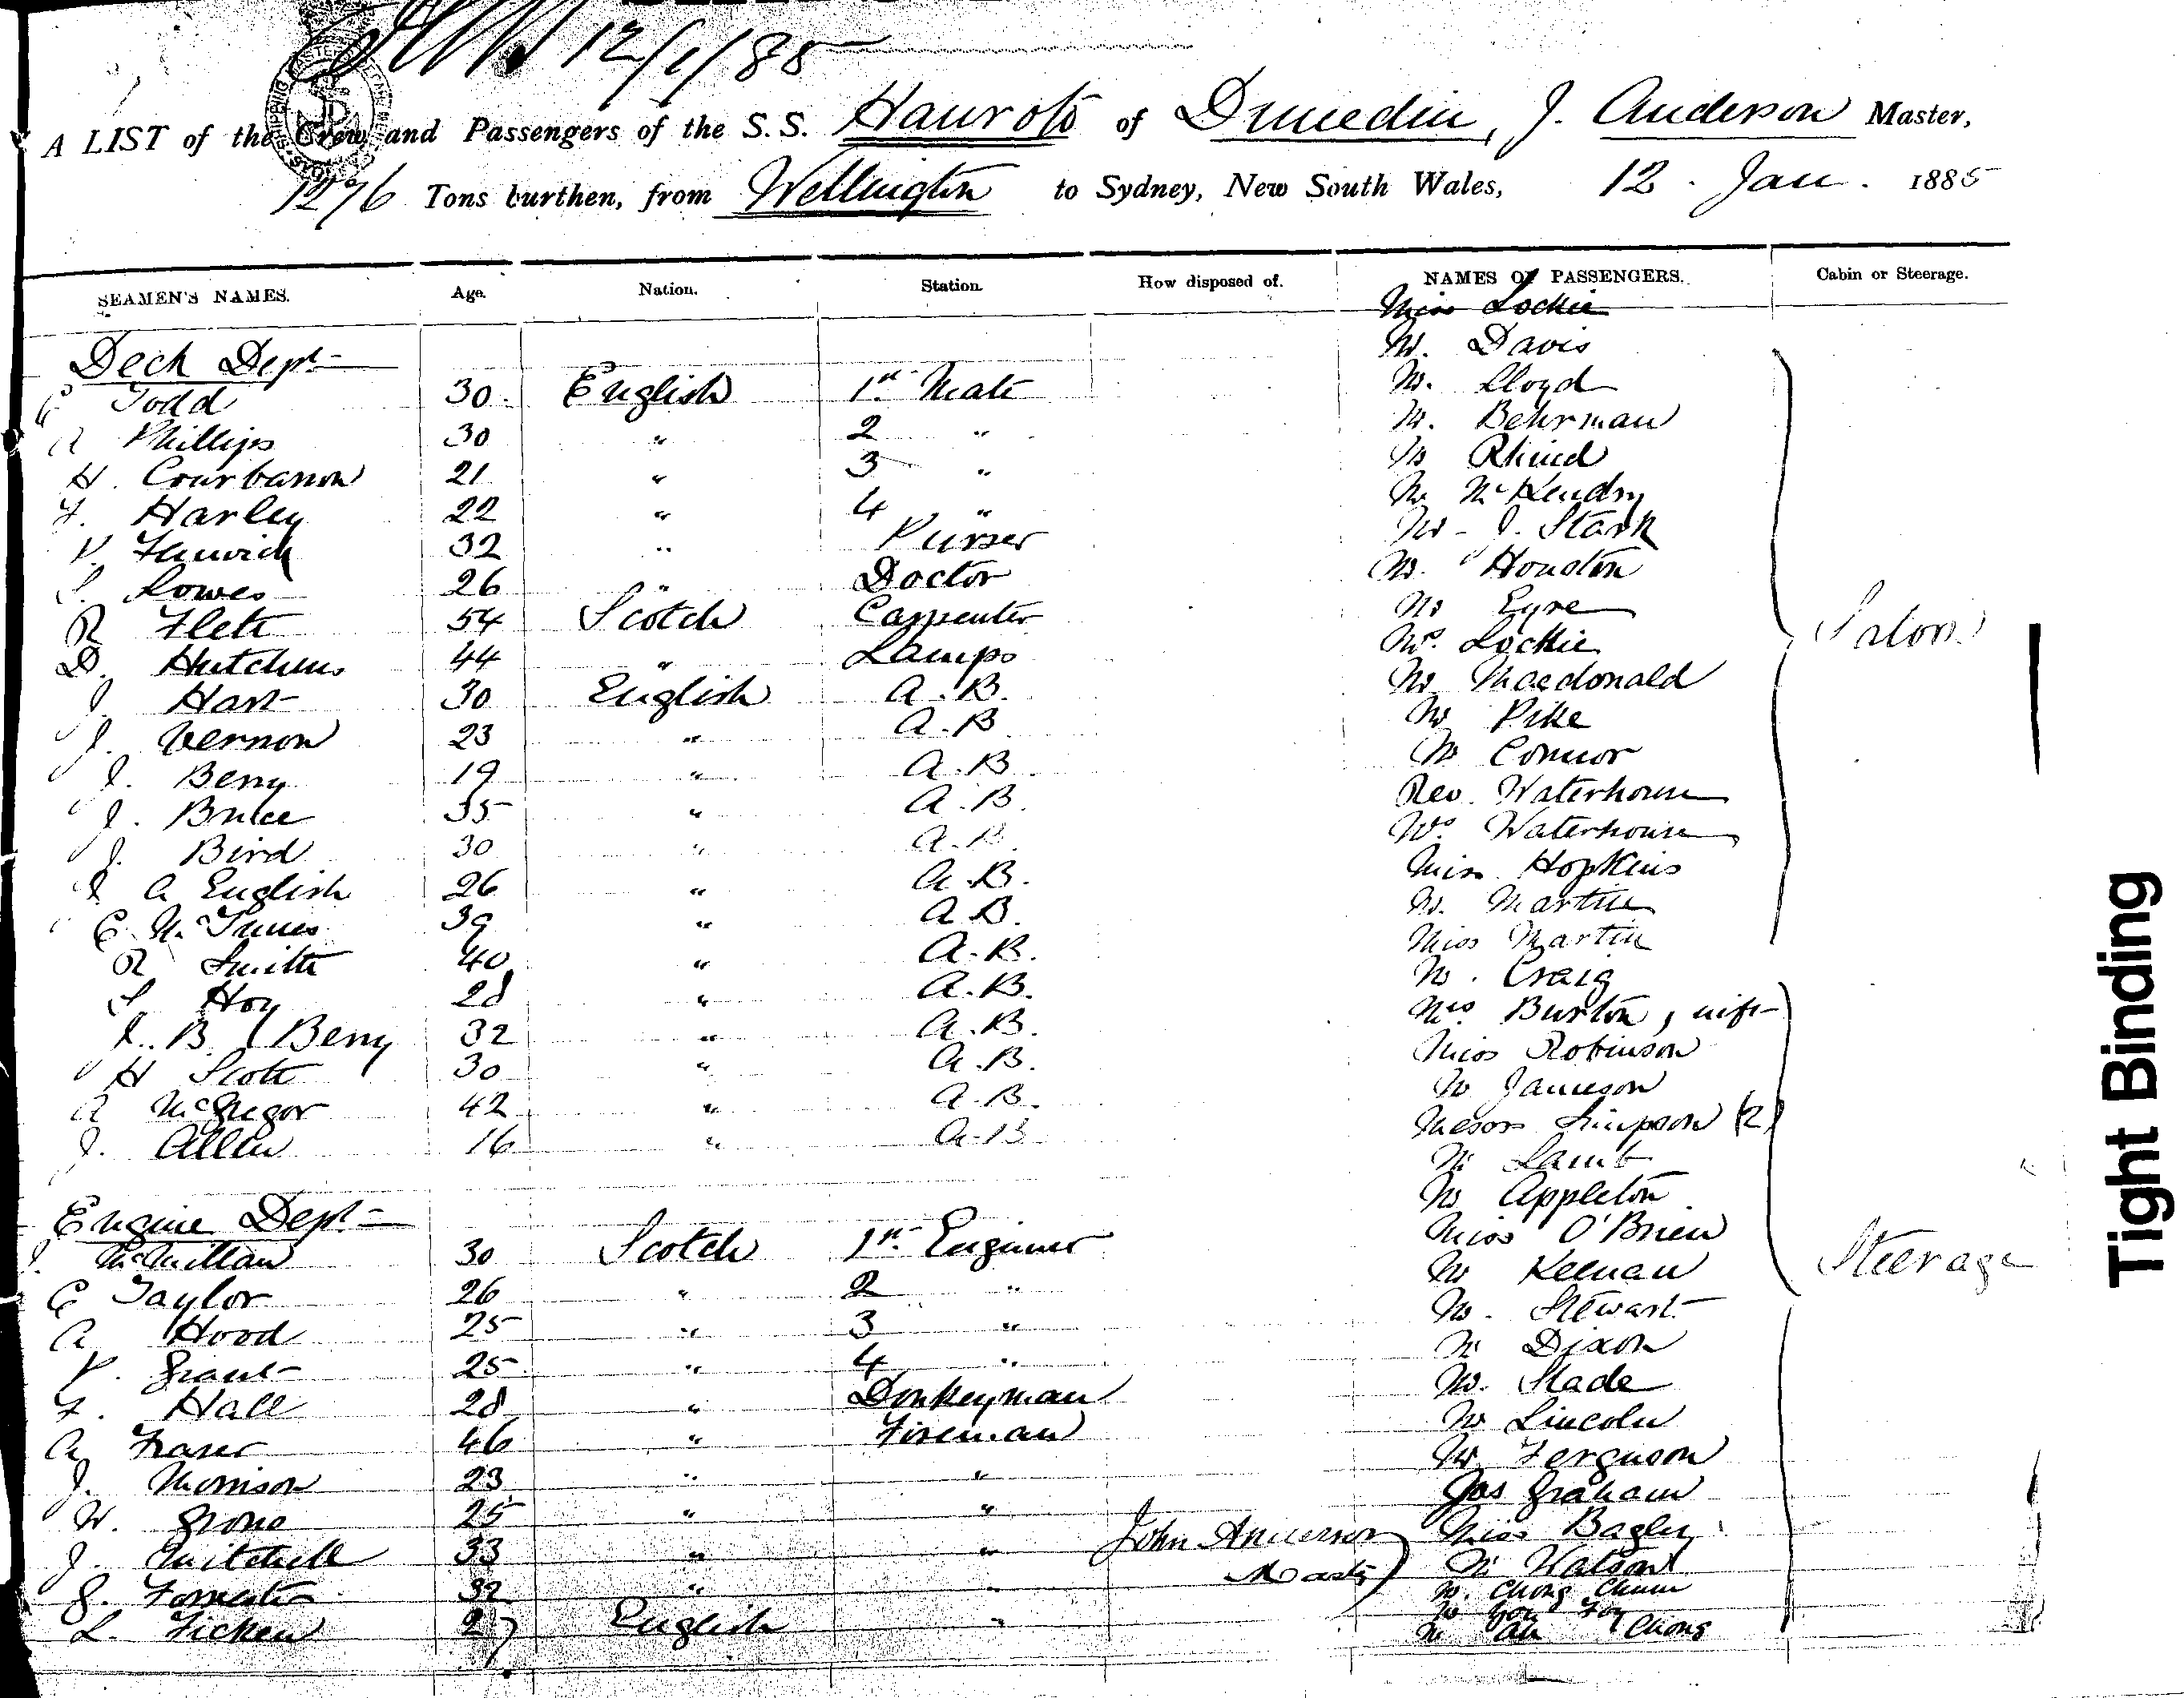 12/1/85
A LIST of the Crew and Passengers of the S.S. Hauroto of Dunedin, J. Anderson Master,
1276 Tons burthen, from Wellington to Sydney, New South Wales, 12. Jan. 1885
SEAMEN'S NAMES. Age. Nation. Station. How disposed of. NAMES OF PASSENGERS. Cabin or Steerage.
Miss Lockie
Deck Dept M. Davis
Todd 30 English 1st Mate Mr. Lloyd
A Phillips 30 " 2 " Mr. Behrman
H. Courbarron 21 " 3 " Mr Rhind
F. Harley 22 " 4 " Mr McKendry
P. Fenwick 32 " Purser Mr J. Stark
S. Lowes 26 " Doctor Mr. Houston
R Flett 54 Scotch Carpenter Mr Eyre
D. Hutchens 44 " Lamps Mrs. Lockie
J. Hart 30 English A.B. Mr Macdonald
J. Vernon 23 " A.B Mr Pike
J. Berry 19 " A.B Mr Connor
J. Bruce 35 " A.B. Rev. Waterhouse
J. Bird 30 " A.B. Mrs. Waterhouse
J A English 26 " A.B. Miss Hopkins
C McInnes 39 " A B. Mr. Martin
R Smith 40 " A.B. Miss Martin
S. Hoy 28 " A.B. Mr. Craig
J. B. Berry 32 " A.B. Mrs Burton, inft
H Scott 30 " A.B. Miss Robinson
A McGregor 42 " A.B. Mr Jameson
J. Allen 16 " A.B Messrs Simpson (2)
Saloon
Mr Lamb
Mr Appleton
Engine Dept Miss O'Brien
J. McMillan 30 Scotch 1st Engineer Mr Keenan Steerage
C Taylor 26 " 2 " Mr. Stewart
A Hood 25 " 3 " Mr Dixon
P. Grant 25 " 4 " Mr. Slade
F. Hall 28 " Donkeyman Mr Lincoln
A Fraser 46 " Fireman Mr Ferguson
J. Morrison 23 " " Jas Graham
W. Grono 25 " " Miss Bagley
J. Mitchell 33 " " John Anderson Mr Watson
G. Forrester 32 " " Master Mr. Chong Chum
L. Ficken English " Mr Gou Foy
Mr Ah Chong
Tight Binding